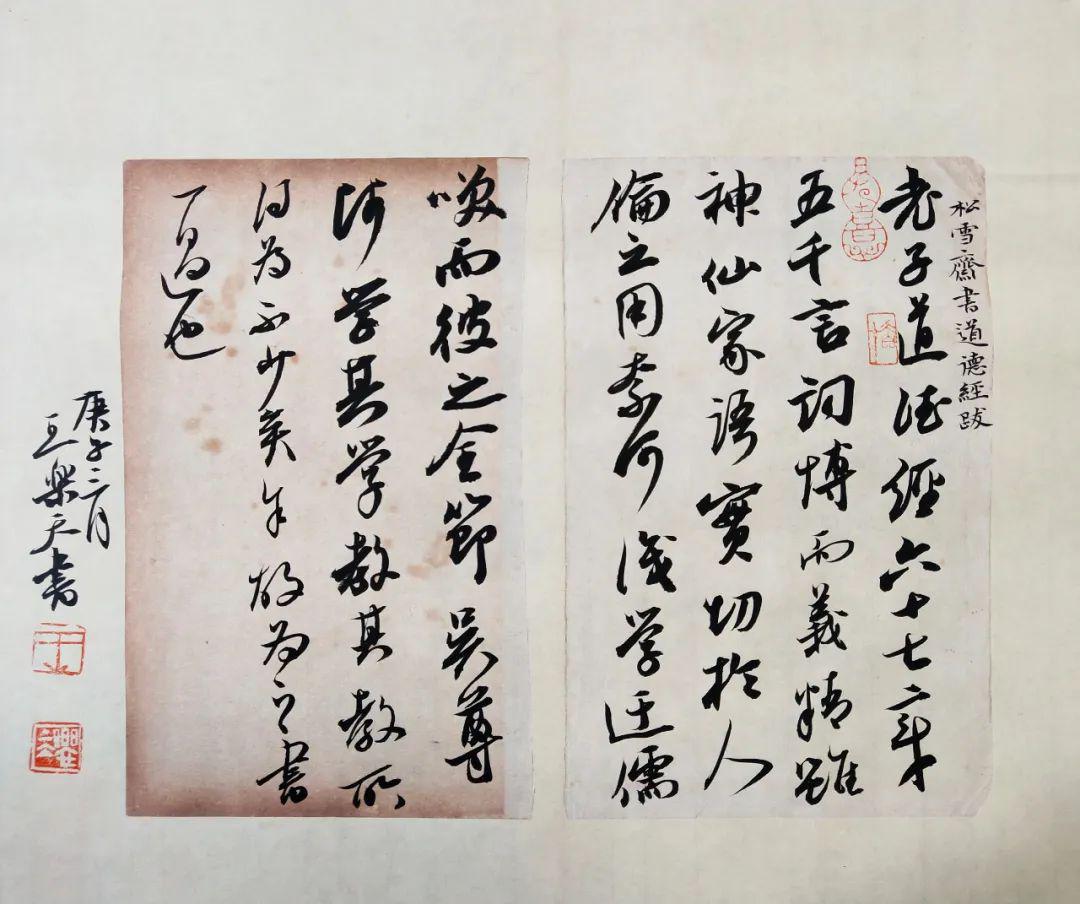 松雪齋書道德經跋
老子道德經六十七章
五千言詞博而義精雖
神仙家語實切於人
倫之用奈何淺学迂儒
而彼之全節吳尊
師学其学教其教所
得为不少矣故为之書
一過也
庚子月
王樂天書